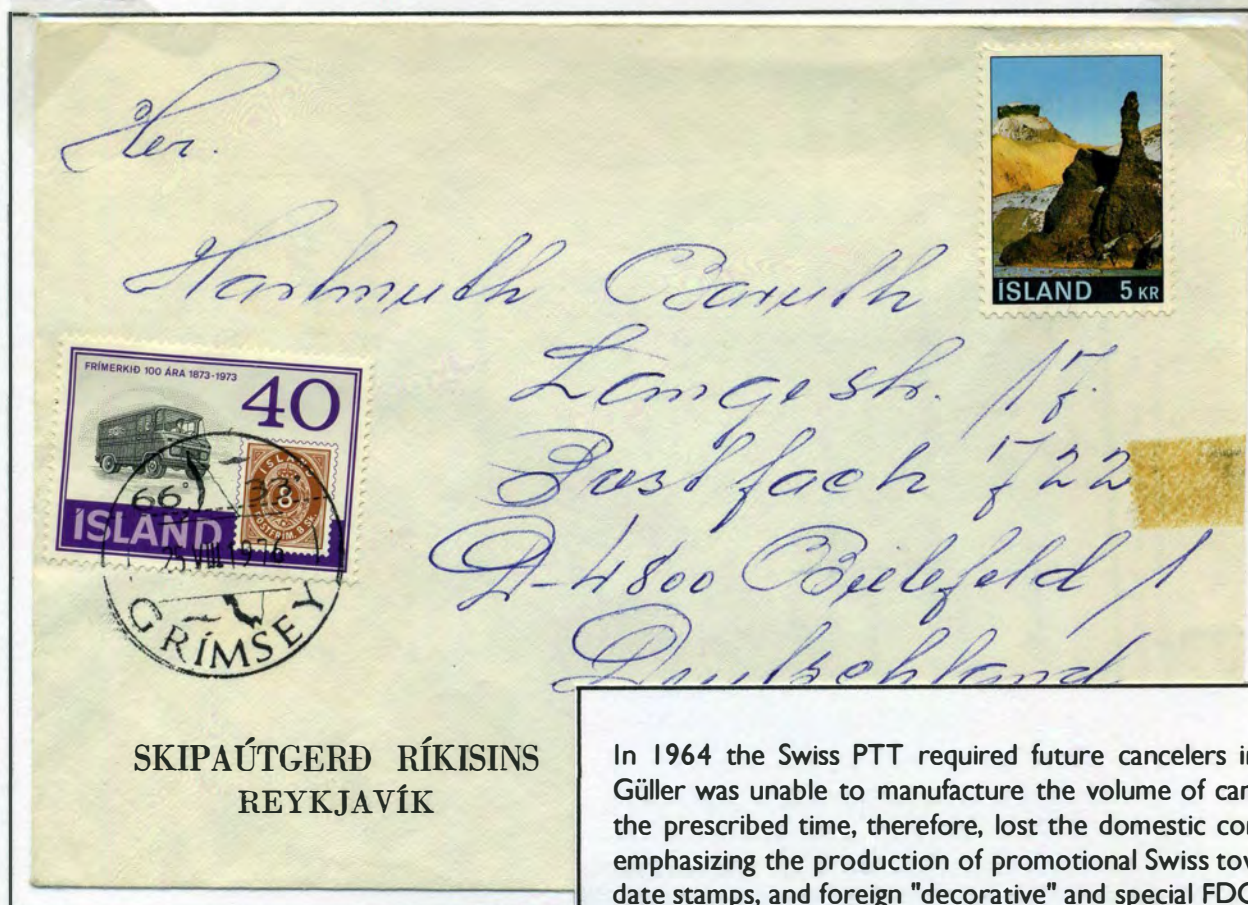 Her.
Hartmuth Baruth
Langestr. 17
Postfach 722
D-4800 Bielefeld 1
Deutschland
ÍSLAND 5 KR
FRÍMERKIÐ 100 ÁRA 1873-1973
40
ÍSLAND
8
PÓSTFRÍM. 8 SK.
ÍSLAND
66° 33'
25 VIII 1976
GRÍMSEY
SKIPAÚTGERÐ RÍKISINS
REYKJAVÍK
In 1964 the Swiss PTT required future cancelers
Güller was unable to manufacture the volume of
the prescribed time, therefore, lost the domestic
emphasizing the production of promotional Swiss
date stamps, and foreign "decorative" and special FDC